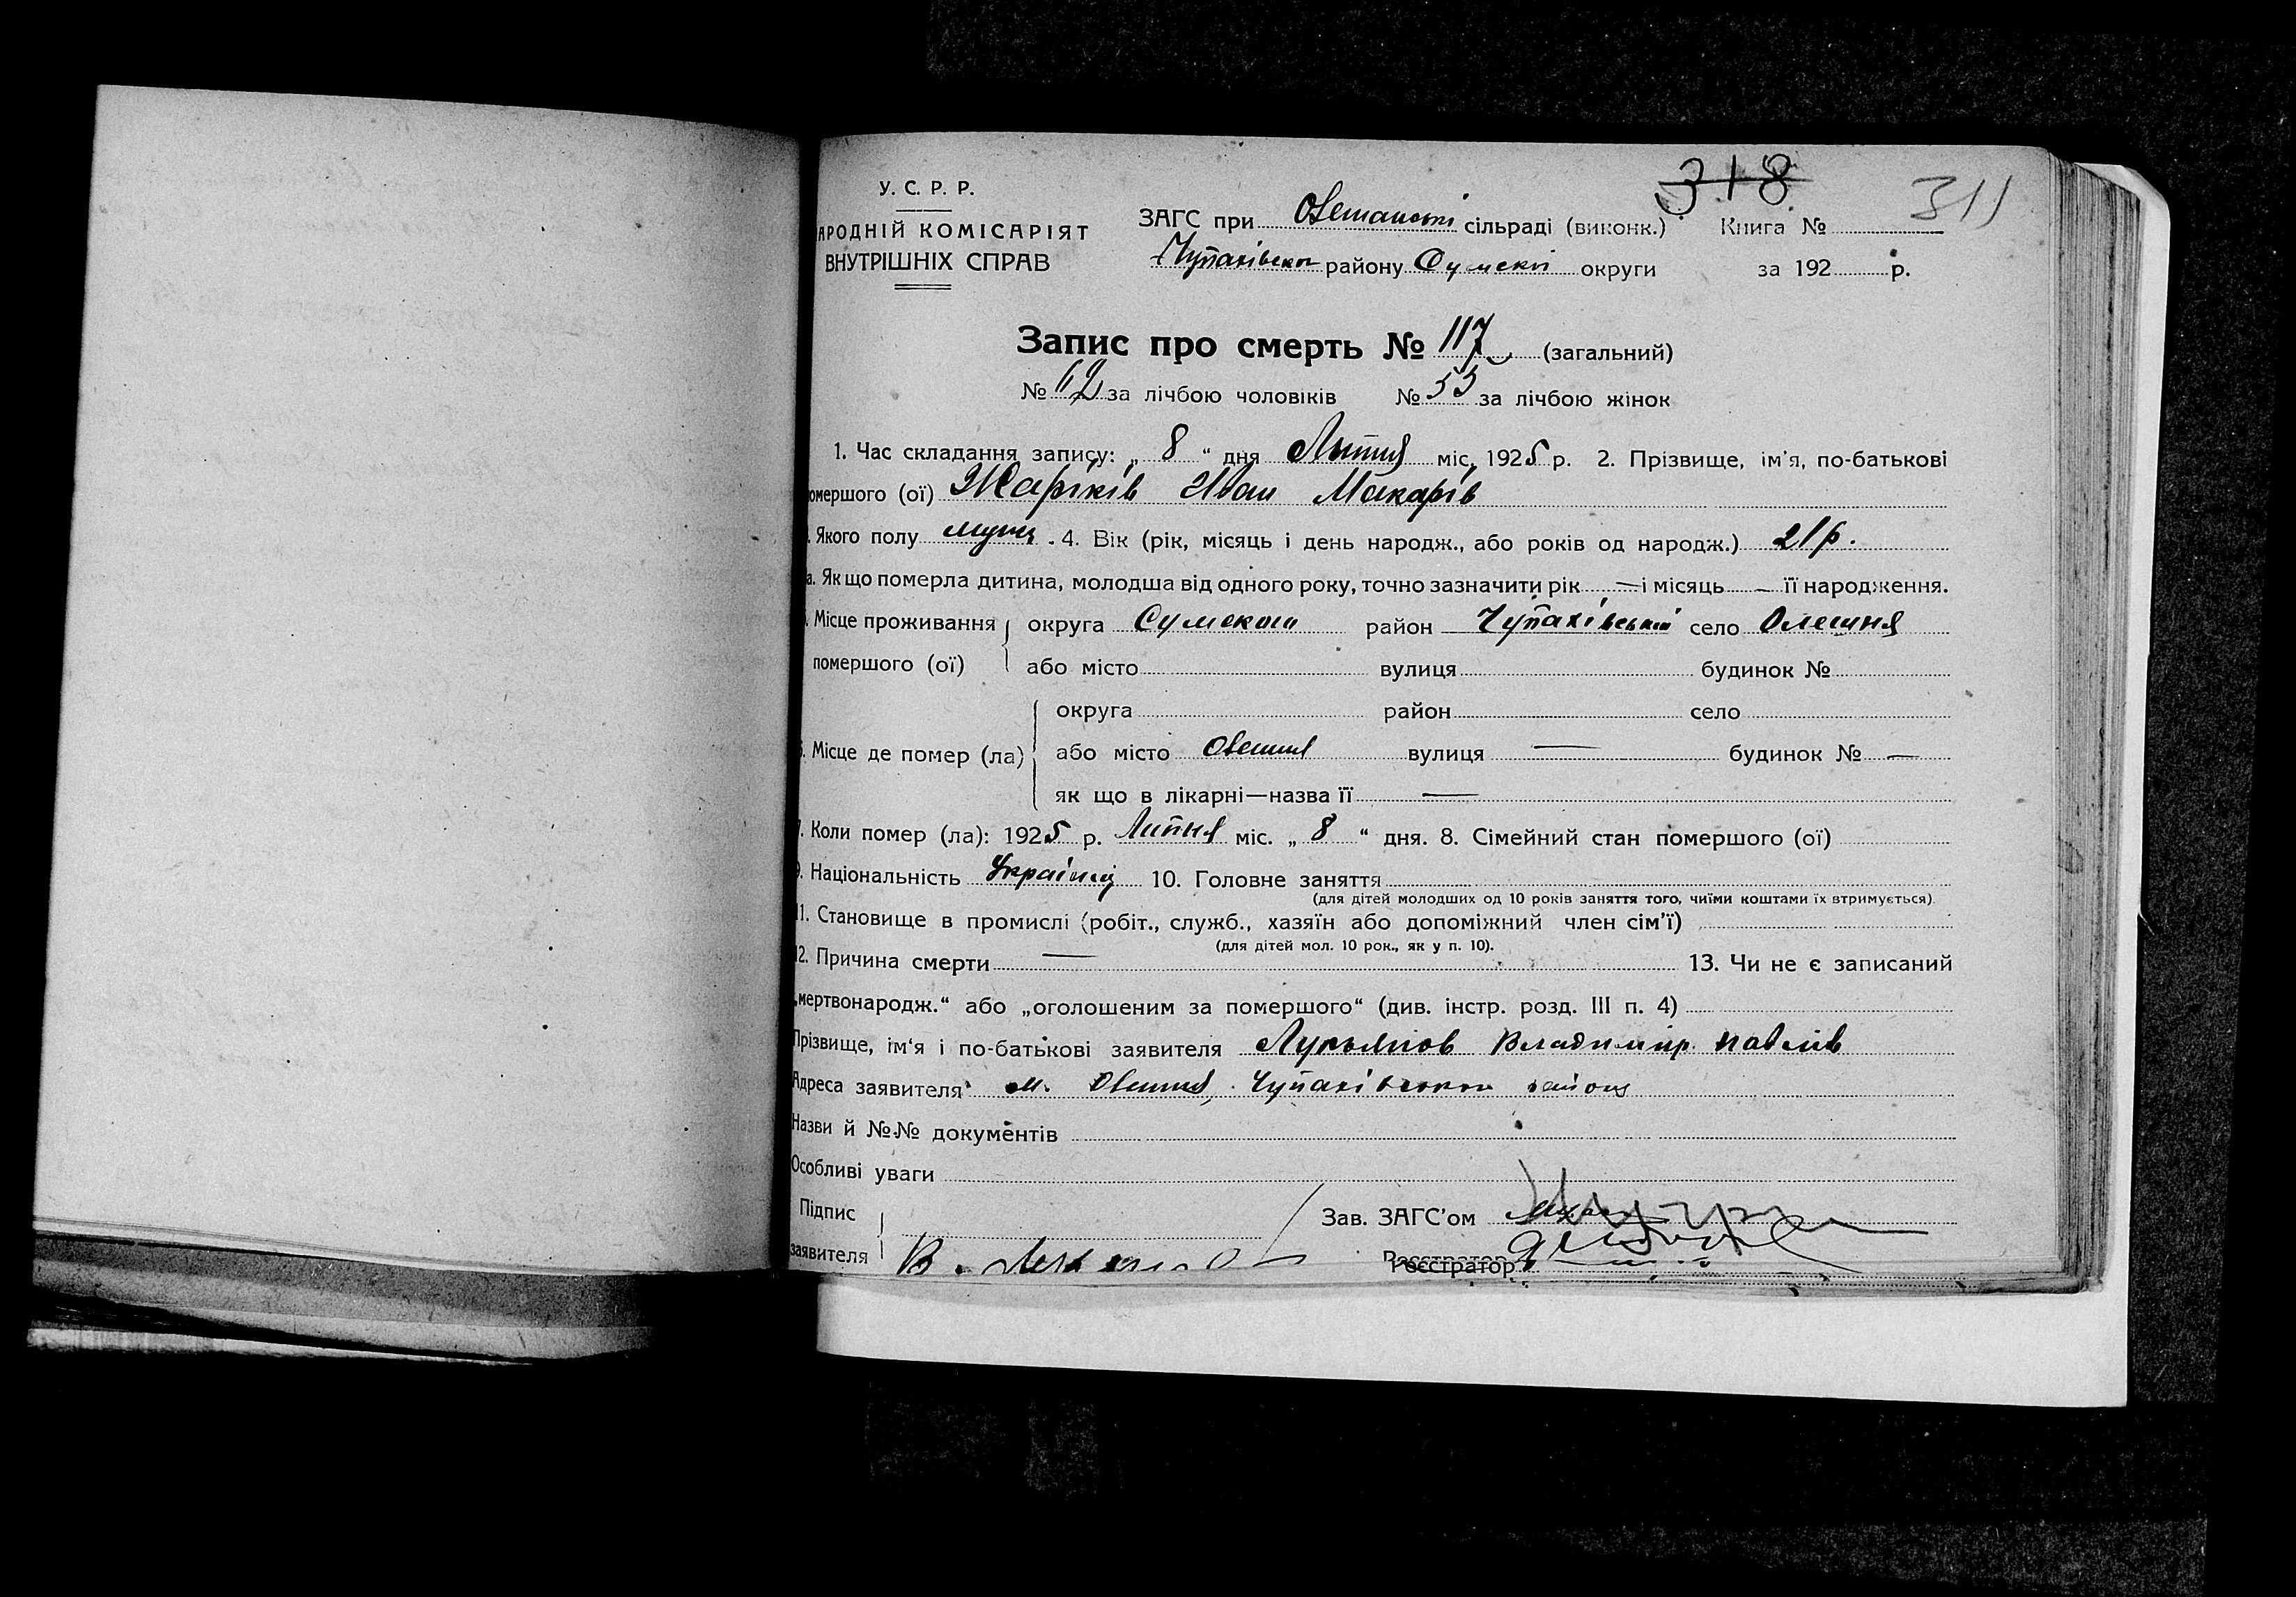 318
311
У. С. Р. Р.
АРОДНІЙ КОМІСАРІЯТ
ВНУТРІШНІХ СПРАВ
ЗАГС при сільраді (виконк.) Книга №
Чупахівськ району Сумскої округи за 192 р.
Запис про смерть № 117 (загальний)
№ 62 за лічбою чоловіків № 55 за лічбою жінок
1. Час складання запису: „ 8 “ дня Липня міс. 1925 р. 2. Прізвище, ім'я, по-батькові
омершого (ої) Жаріків Иван Макарів
. Якого полу муж . 4. Вік (рік, місяць і день народж., або років од народж.) 21 р.
а. Як що померла дитина, молодша від одного року, точно зазначити рік — і місяць — її народження.
. Місце проживання округа Сумскои район Чупахівський село Олешня
помершого (ої) або місто вулиця будинок №
округа район село
. Місце де помер (ла) або місто Олешня вулиця — будинок № —
як що в лікарні—назва її —
7. Коли помер (ла): 1925 р. Липня міс. „ 8 “ дня. 8. Сімейний стан помершого (ої)
9. Національність Українец 10. Головне заняття
(для дітей молодших од 10 років заняття того, чиїми коштами їх втримується).
11. Становище в промислі (робіт., служб., хазяїн або допоміжний член сім'ї)
(для дітей мол. 10 рок., як у п. 10).
12. Причина смерти — 13. Чи не є записаний
„мертвонародж.“ або „оголошеним за помершого“ (див. інстр. розд. III п. 4)
Прізвище, ім'я і по-батькові заявителя Лукьянов Владимир Павлів
Адреса заявителя м. Олешня, Чупахівского району
Назви й №№ документів
Особливі уваги
Підпис Зав. ЗАГС'ом
заявителя В. Реєстратор